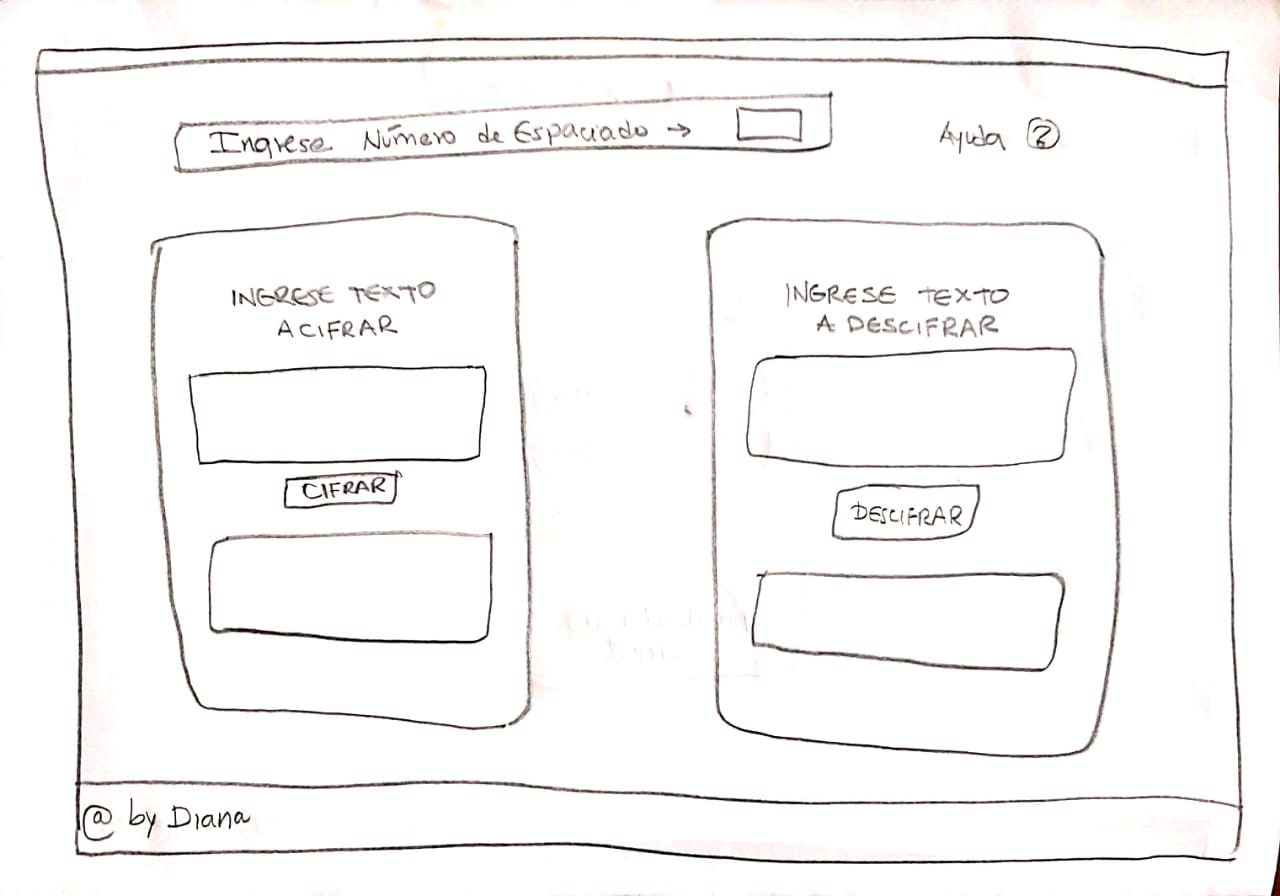 Ingrese Número de Espaciado →
Ayuda ?
INGRESE TEXTO
A CIFRAR
CIFRAR
INGRESE TEXTO
A DESCIFRAR
DESCIFRAR
@ by Diana